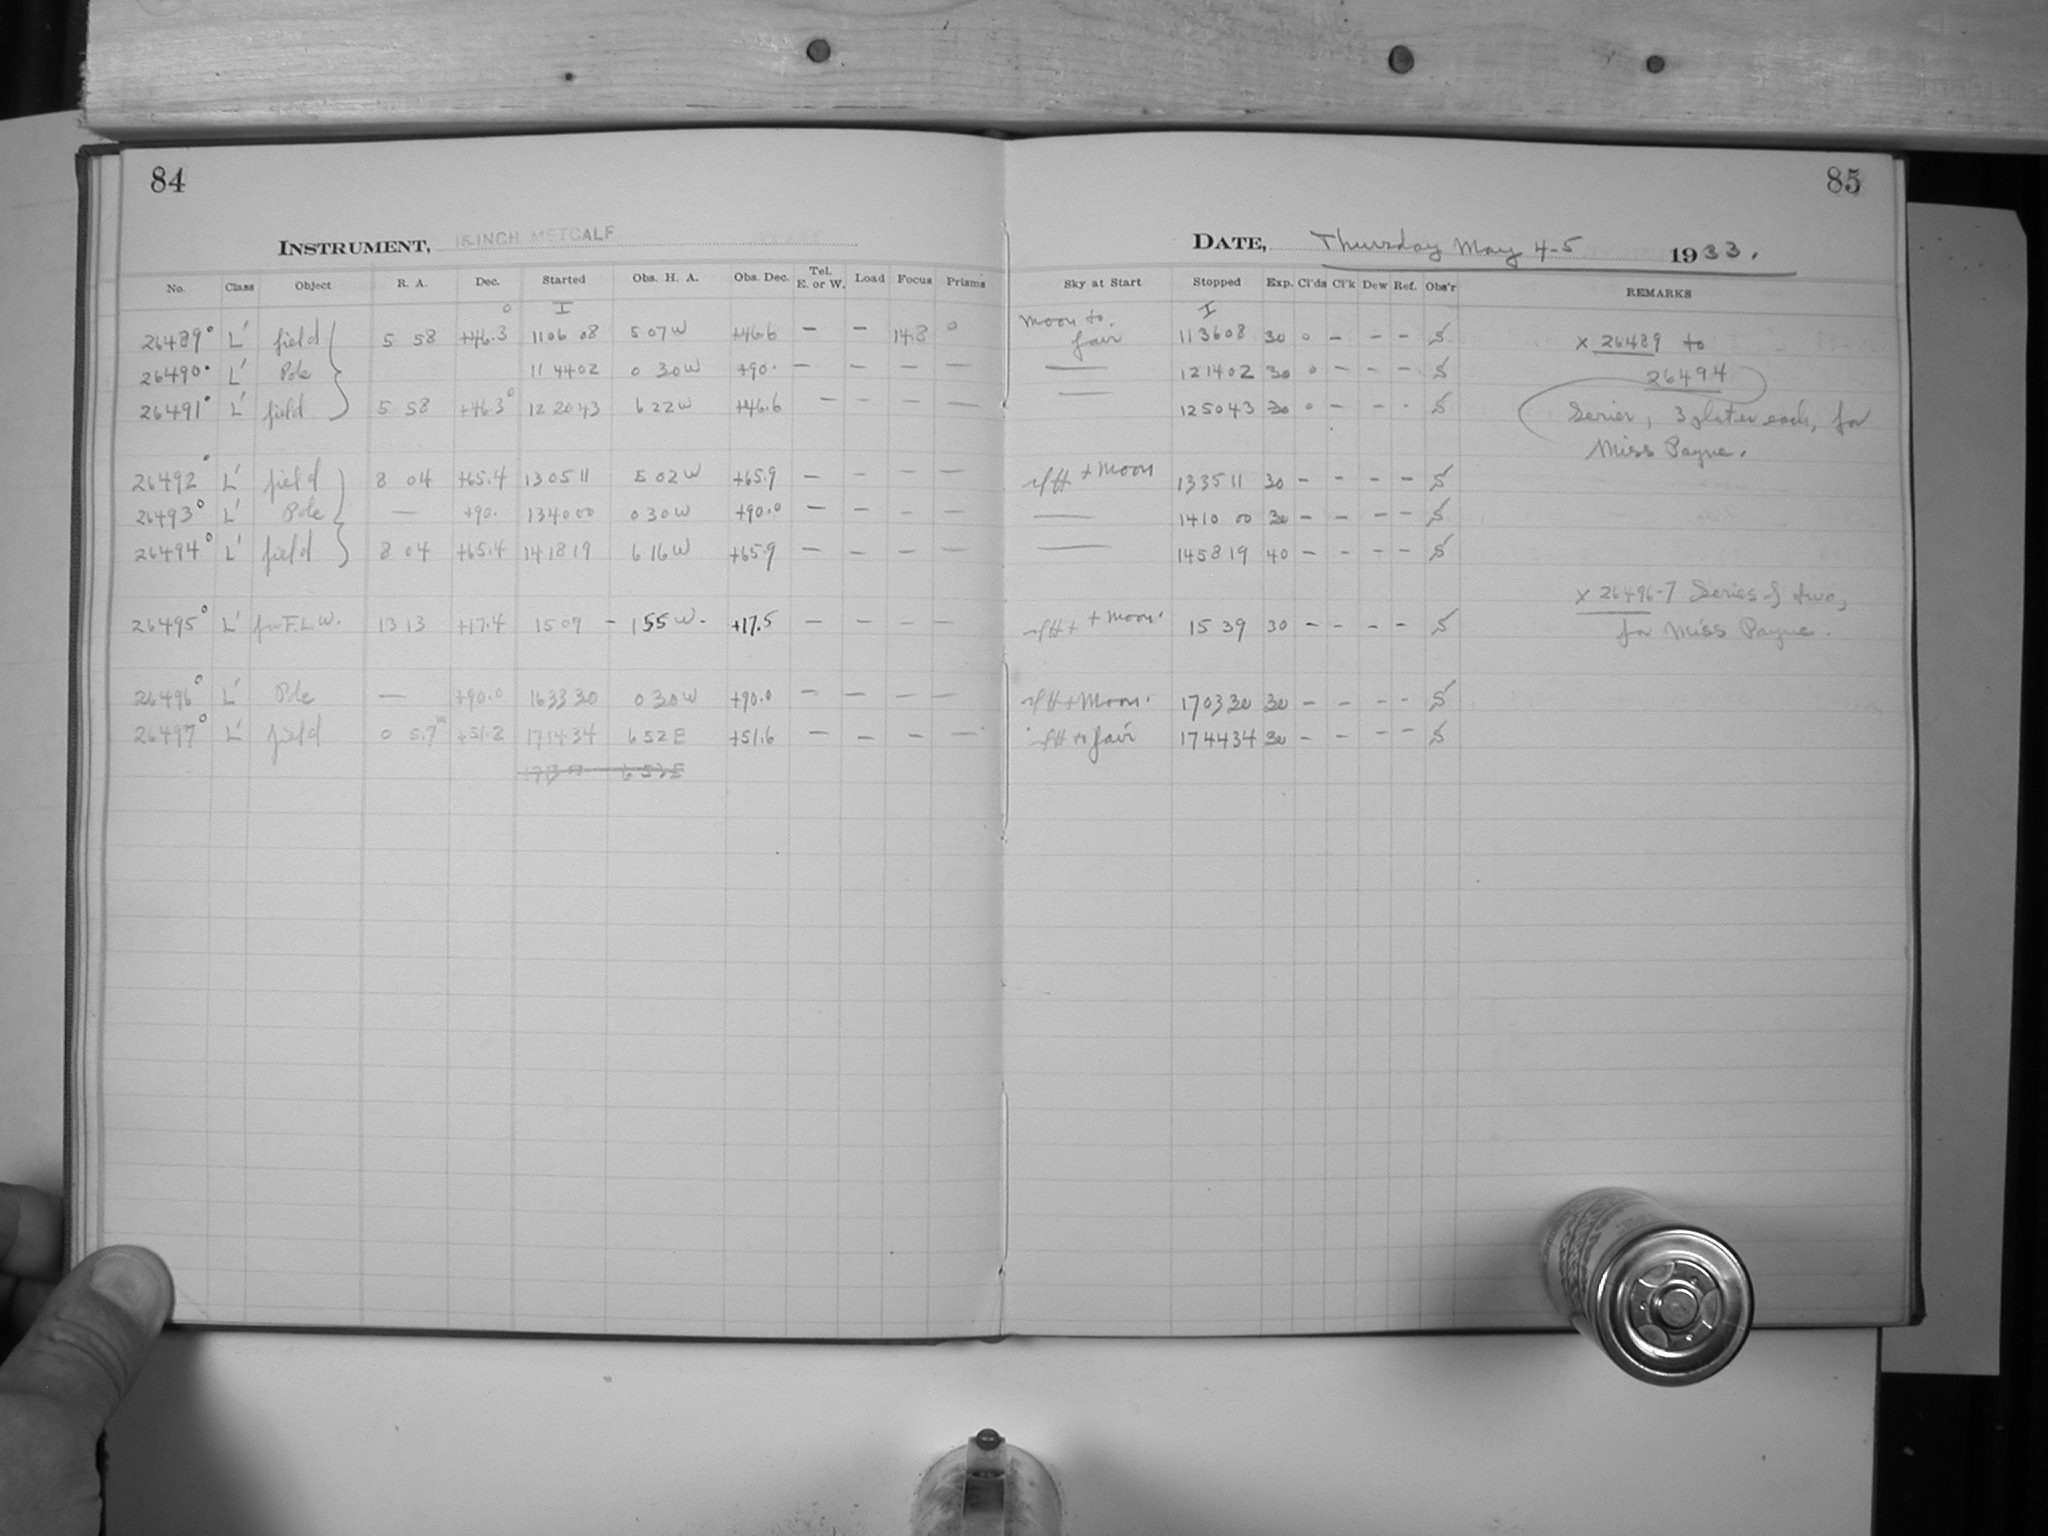 84
85
INSTRUMENT, 16-INCH METCALF
DATE, Thursday May 4-5 1933.
No. Class Object R. A. Dec. Started Obs. H. A. Obs. Dec. Tel. E. or W. Load Focus Prisms Sky at Start Stopped Exp. Cl'ds Cl'k Dew Ref. Obs'r REMARKS
° I I
26489° L' field 5 58 +46.3 11 06 08 5 07 W +46.6 – – 14.8 ° moon to fair 11 36 08 30 ° – – – S x 26489 to
26490° L' Pole 11 44 02 0 30 W +90. – – – – —— 12 14 02 30 ° – – – S 26494
26491° L' field 5 58 +46.3° 12 20 43 6 22 W +46.6 – – – – —— 12 50 43 30 ° – – - S Series, 3 plates each, for
Miss Payne.
26492° L' field 8 04 +65.4 13 05 11 5 02 W +65.9 – – – – + moon 13 35 11 30 – – – – S
26493° L' Pole — +90. 13 40 00 0 30 W +90.0 – – – – —— 14 10 00 30 – – – – S
26494° L' field 8 04 +65.4 14 18 19 6 16 W +65.9 – – – – —— 14 58 19 40 – – – – S
x 26496-7 Series of two,
26495° L' for F.L.W. 13 13 +17.4 15 09 – 1 55 W - +17.5 – – – – + moon. 15 39 30 – – – – S for Miss Payne.
26496° L' Pole — +90.0 16 33 30 0 30 W +90.0 – – – – + Moon. 17 03 30 30 – – – - S
26497° L' field 0 5.7 +51.2 17 14 34 6 52 E +51.6 – – – – to fair 17 44 34 30 – – – – S
6 53 E